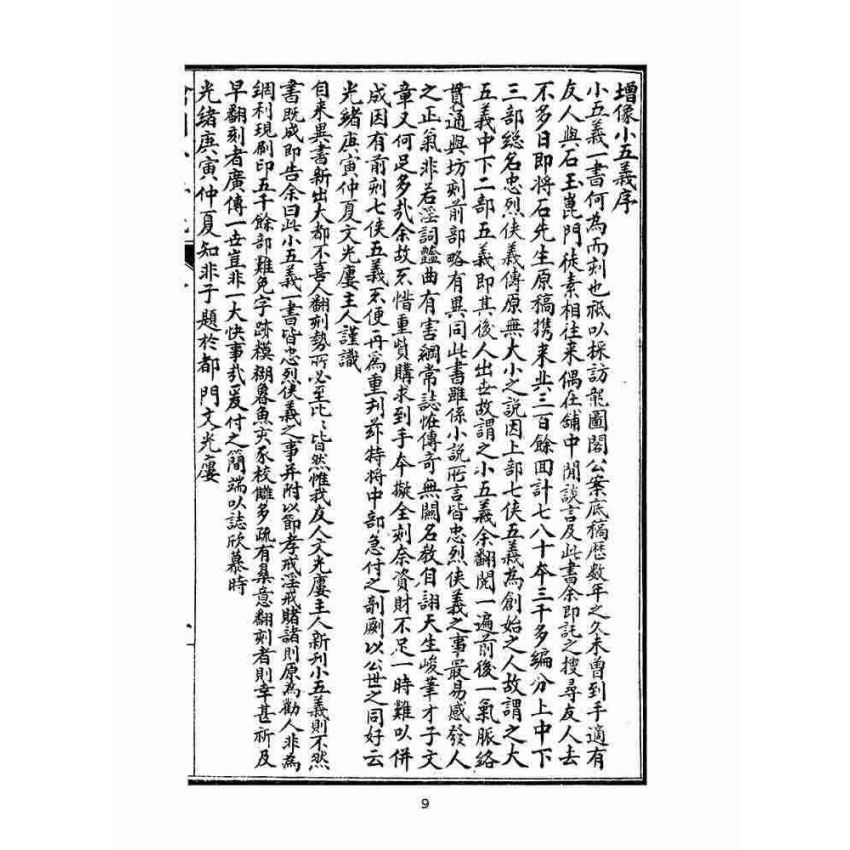 增像小五義序
小五義一書何為而刻也祗以採訪龍圖閣公案底稿歷數年之久未曾到手適有
友人與石玉崑門徒素相往來偶在舖中閒談言及此書余即託之搜尋友人去
不多日即將石先生原稿携来共三百餘回計七八十本三千多編分上中下
三部總名忠烈俠義傳原無大小之說因上部七俠五義為創始之人故謂之大
五義中下二部五義即其後人出世故謂之小五義余翻閱一遍前後一氣脈絡
貫通與坊刻前部略有異同此書雖係小說所言皆忠烈俠義之事最易感發人
之正氣非若淫詞豔曲有害綱常誌怪傳奇無關名教自詡天生峻筆才子文
章又何足多哉余故不惜重貲購求到手本擬全刻奈資財不足一時難以併
成因有前刻七俠五義不便再為重刊茲特將中部急付之剞劂以公世之同好云
光緒庚寅仲夏文光廔主人謹識
自来異書新出大都不喜人翻刻勢所必至比比皆然惟我友人文光廔主人新刊小五義則不然
書既成即告余曰此小五義一書皆忠烈俠義之事并附以節孝戒淫戒賭諸則原為勸人非為
網利現刷印五千餘部難免字跡模糊魯魚亥豕校讎多疏有鼻意翻刻者則幸甚祈及
早翻刻者廣傳一世豈非一大快事哉爰付之簡端以誌欣慕時
光緒庚寅仲夏知非子題於都門文光廔
9